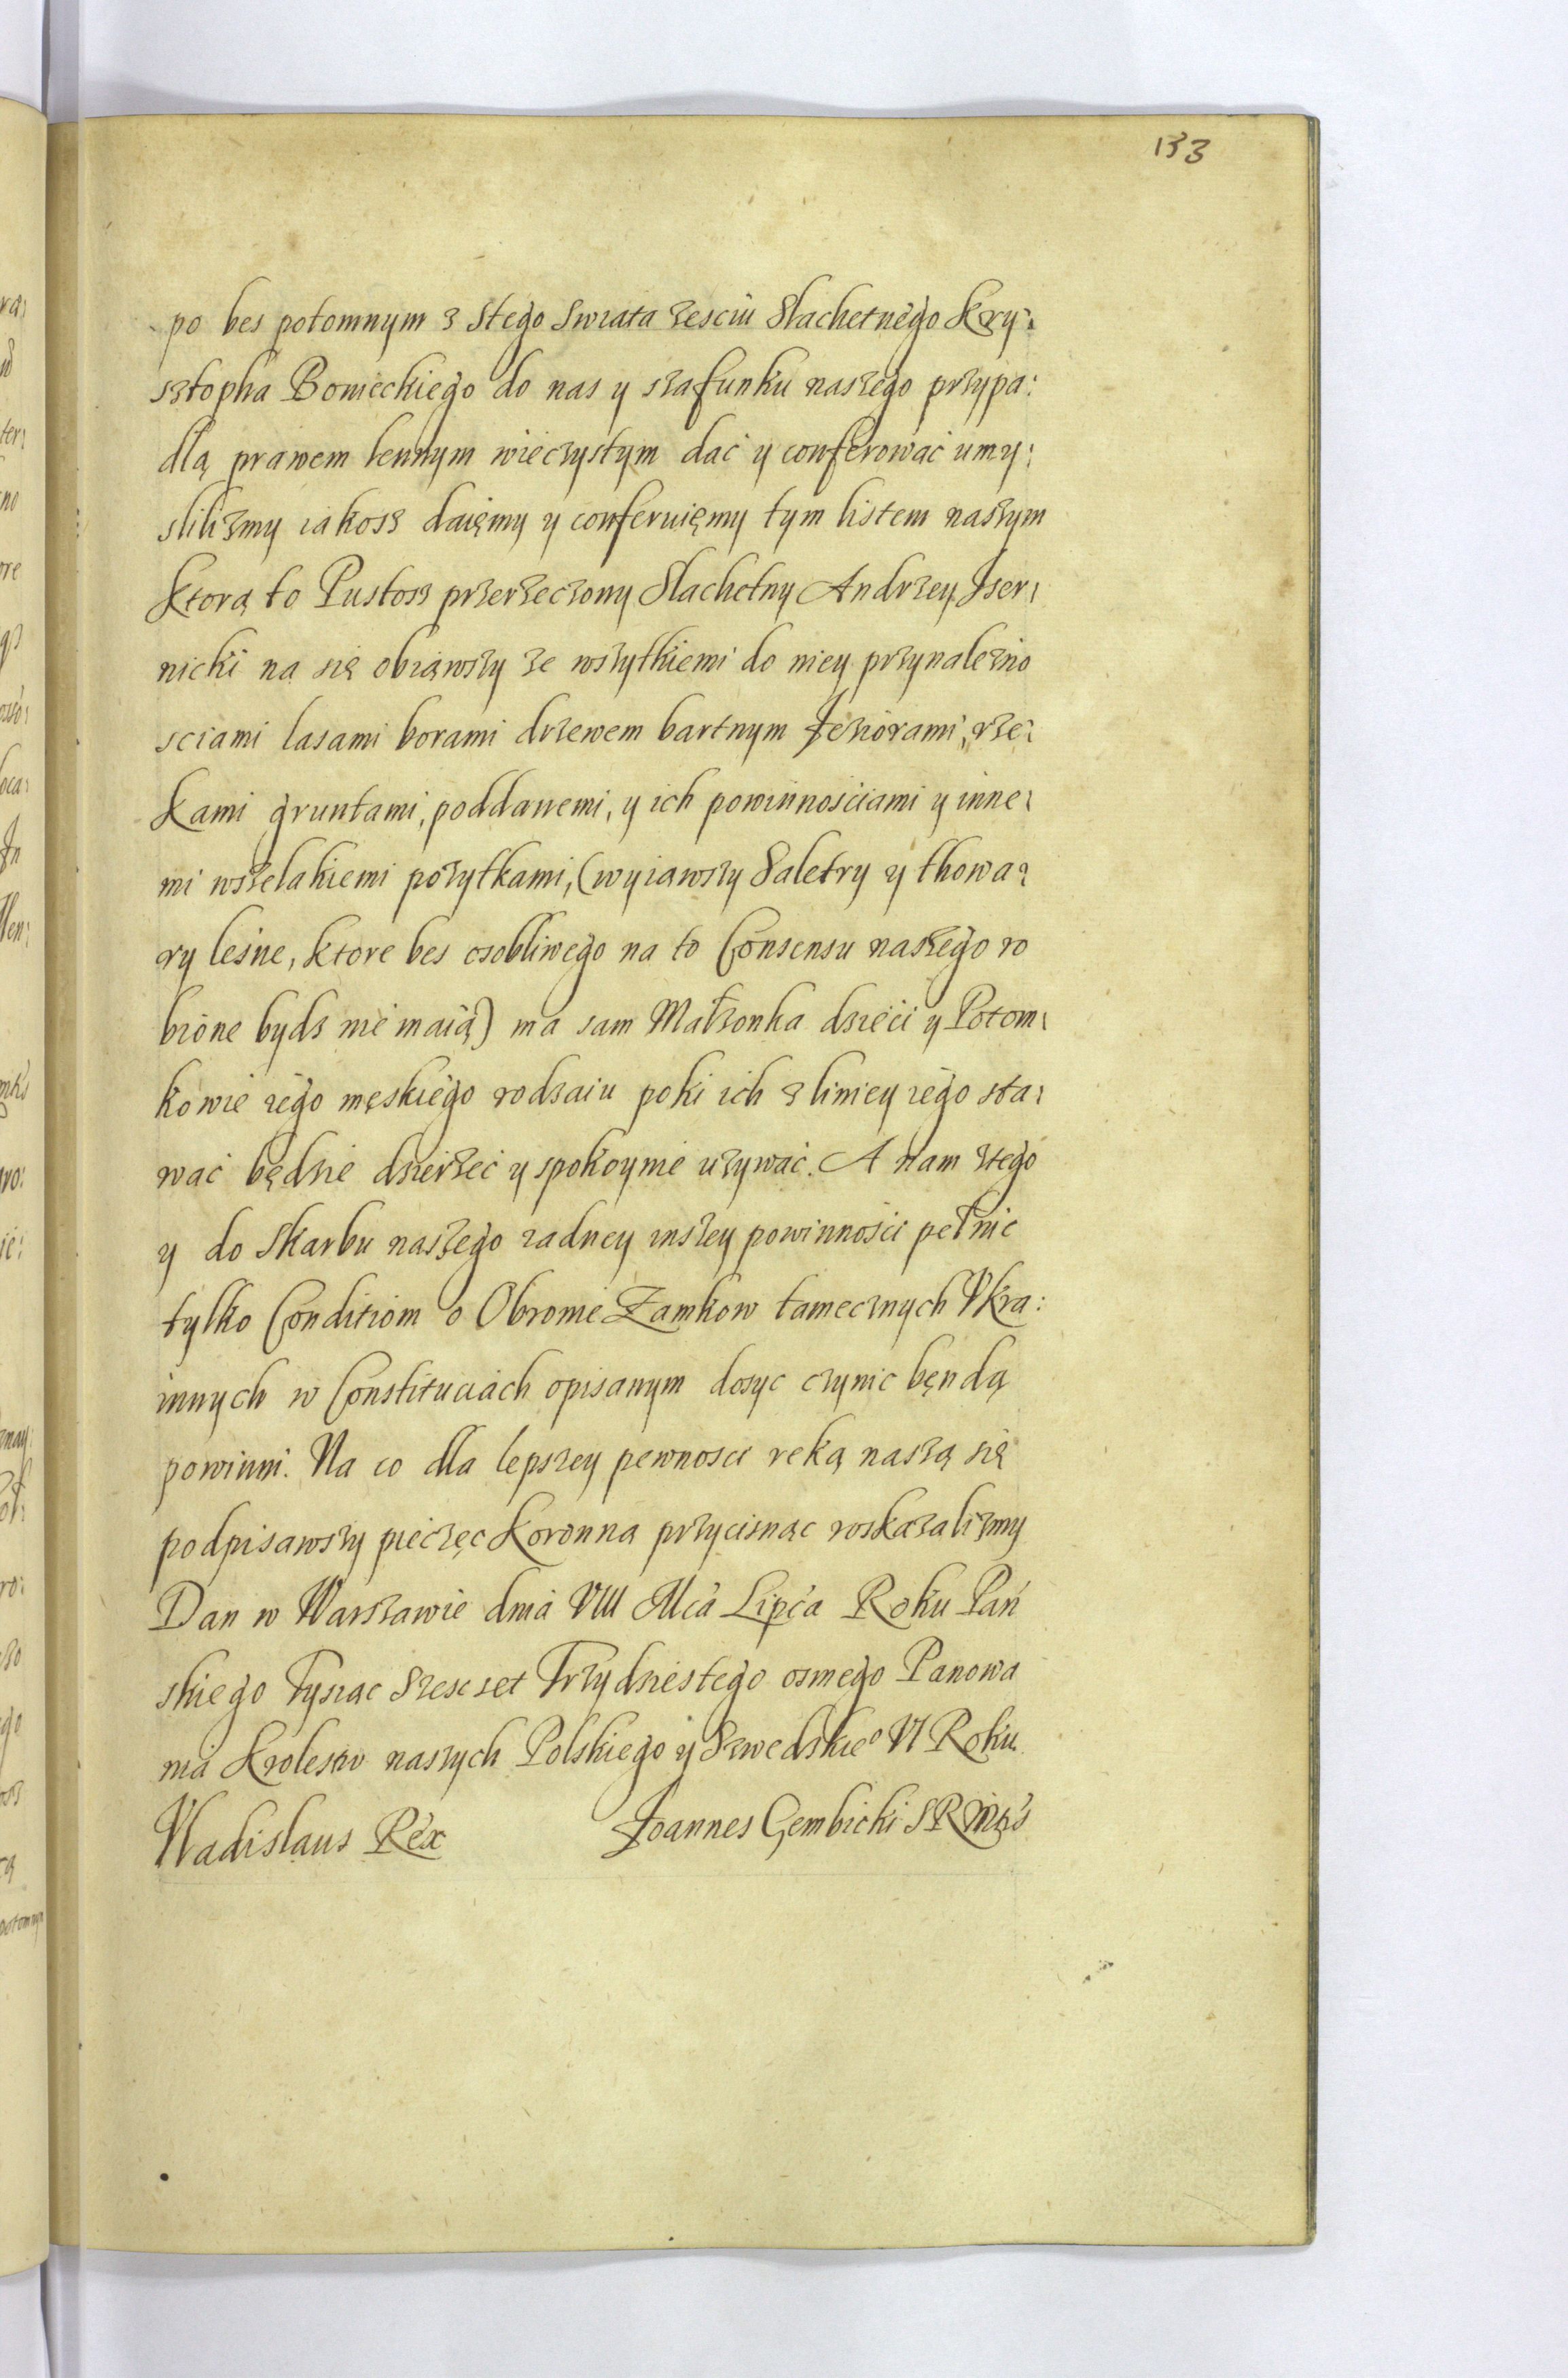 133
po bes potomnym z Stego Swiata zesciu Slachetnego Kry:
sztopha Bonieckiego do nas y szafunku naszego przypa:
dlą prawem lennym wieczystym dać y conferować umy:
slilizmy iakosz daięmy y conferuięmy tym listem naszym
Ktorą to Pustosz przerzeczony Slachetny Andrzey Iser:
nicki na się obiąwszy ze wszytkiemi do niey przynalezno
sciami lasami borami drzewem bartnym Jeziorami, rze:
kami gruntami, poddanemi, y ich powinnościami y inne:
mi wszelakiemi pozytkami, (wyiawszy Saletry y thowa:
ry leśne, ktore bes osobliwego na to Consensu naszego ro
bione bydz nie maią) ma sam Małzonka dzieci y Potom:
kowie iego męskiego rodzaiu poki ich z liniey iego sta:
wać będzie dzierżeć y spokoynie uzywać. A nam ztego
y do Skarbu naszego zadney inszey powinnosci pełnic
tylko Conditiom o Obronie Zamkow tamecznych Vkra:
innych w Constituciach opisanym dosyc czynic będą
powinni. Na co dla lepszey pewnosci reką naszą się
podpisawszy pieczęc Koronną przycisnąc roskazalizmy
Dan w Warszawie dnia VIII Mca Lipca Roku Pań
skiego Tysiąc Szescset Trzydziestego osmego Panowa
nia Krolestw naszych Polskiego y Szwedskieo VI Roku
Vladislaus Rex Joannes Gembicki SRMtis